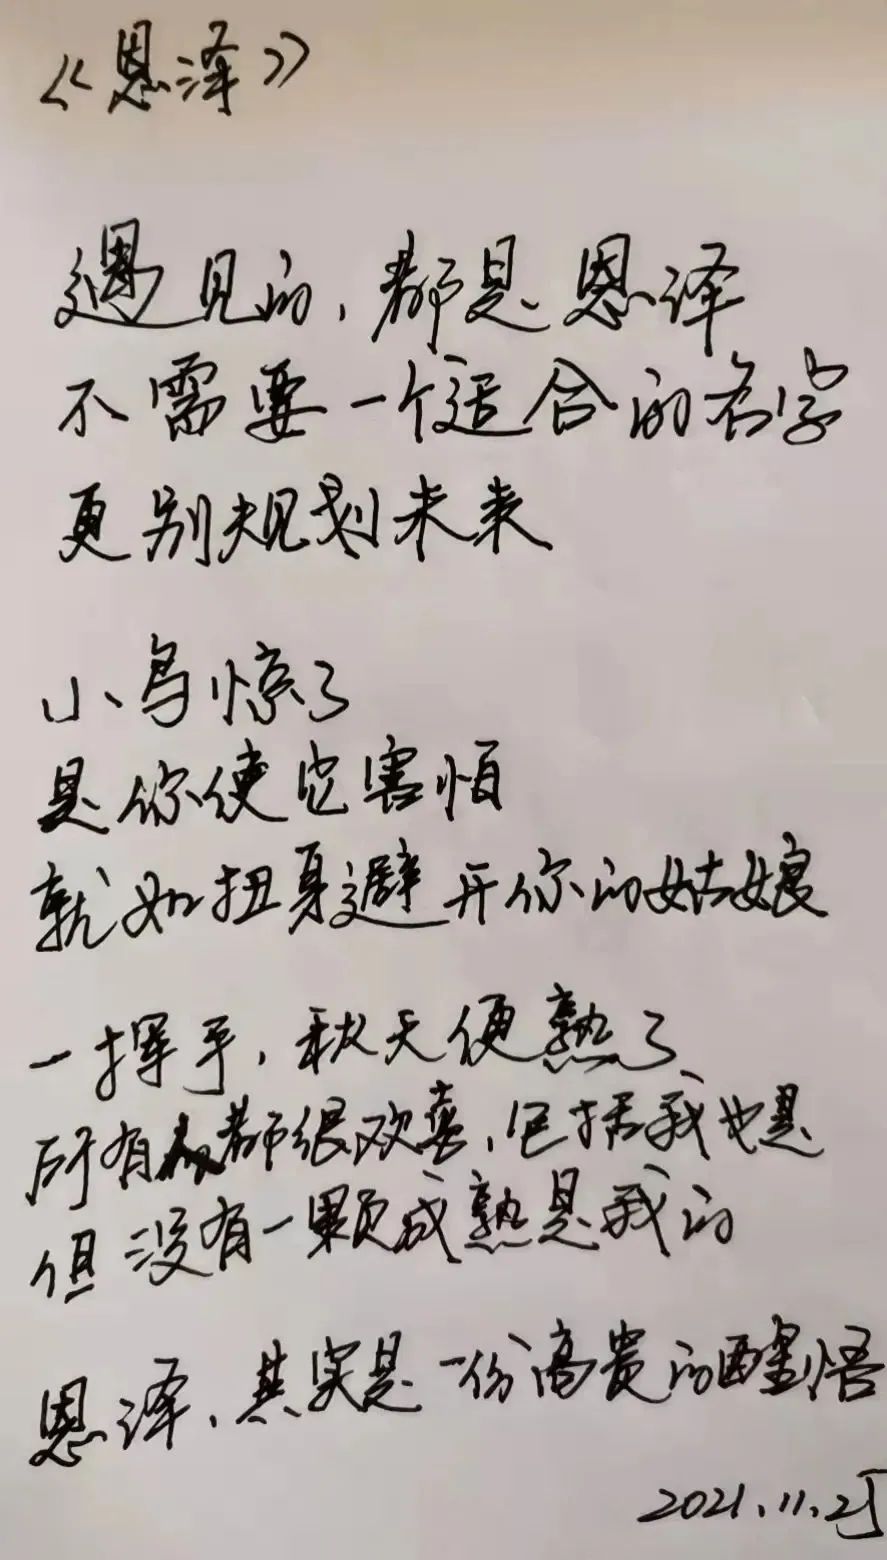 《恩泽》
遇见的，都是恩泽
不需要一个适合的名字
更别规划未来
小鸟惊了
是你使它害怕
就如扭身避开你的姑娘
一挥手，秋天便熟了
所有人都很欢喜，包括我也是
但没有一颗成熟是我的
恩泽，其实是一份高贵的醒悟
2021.11.25